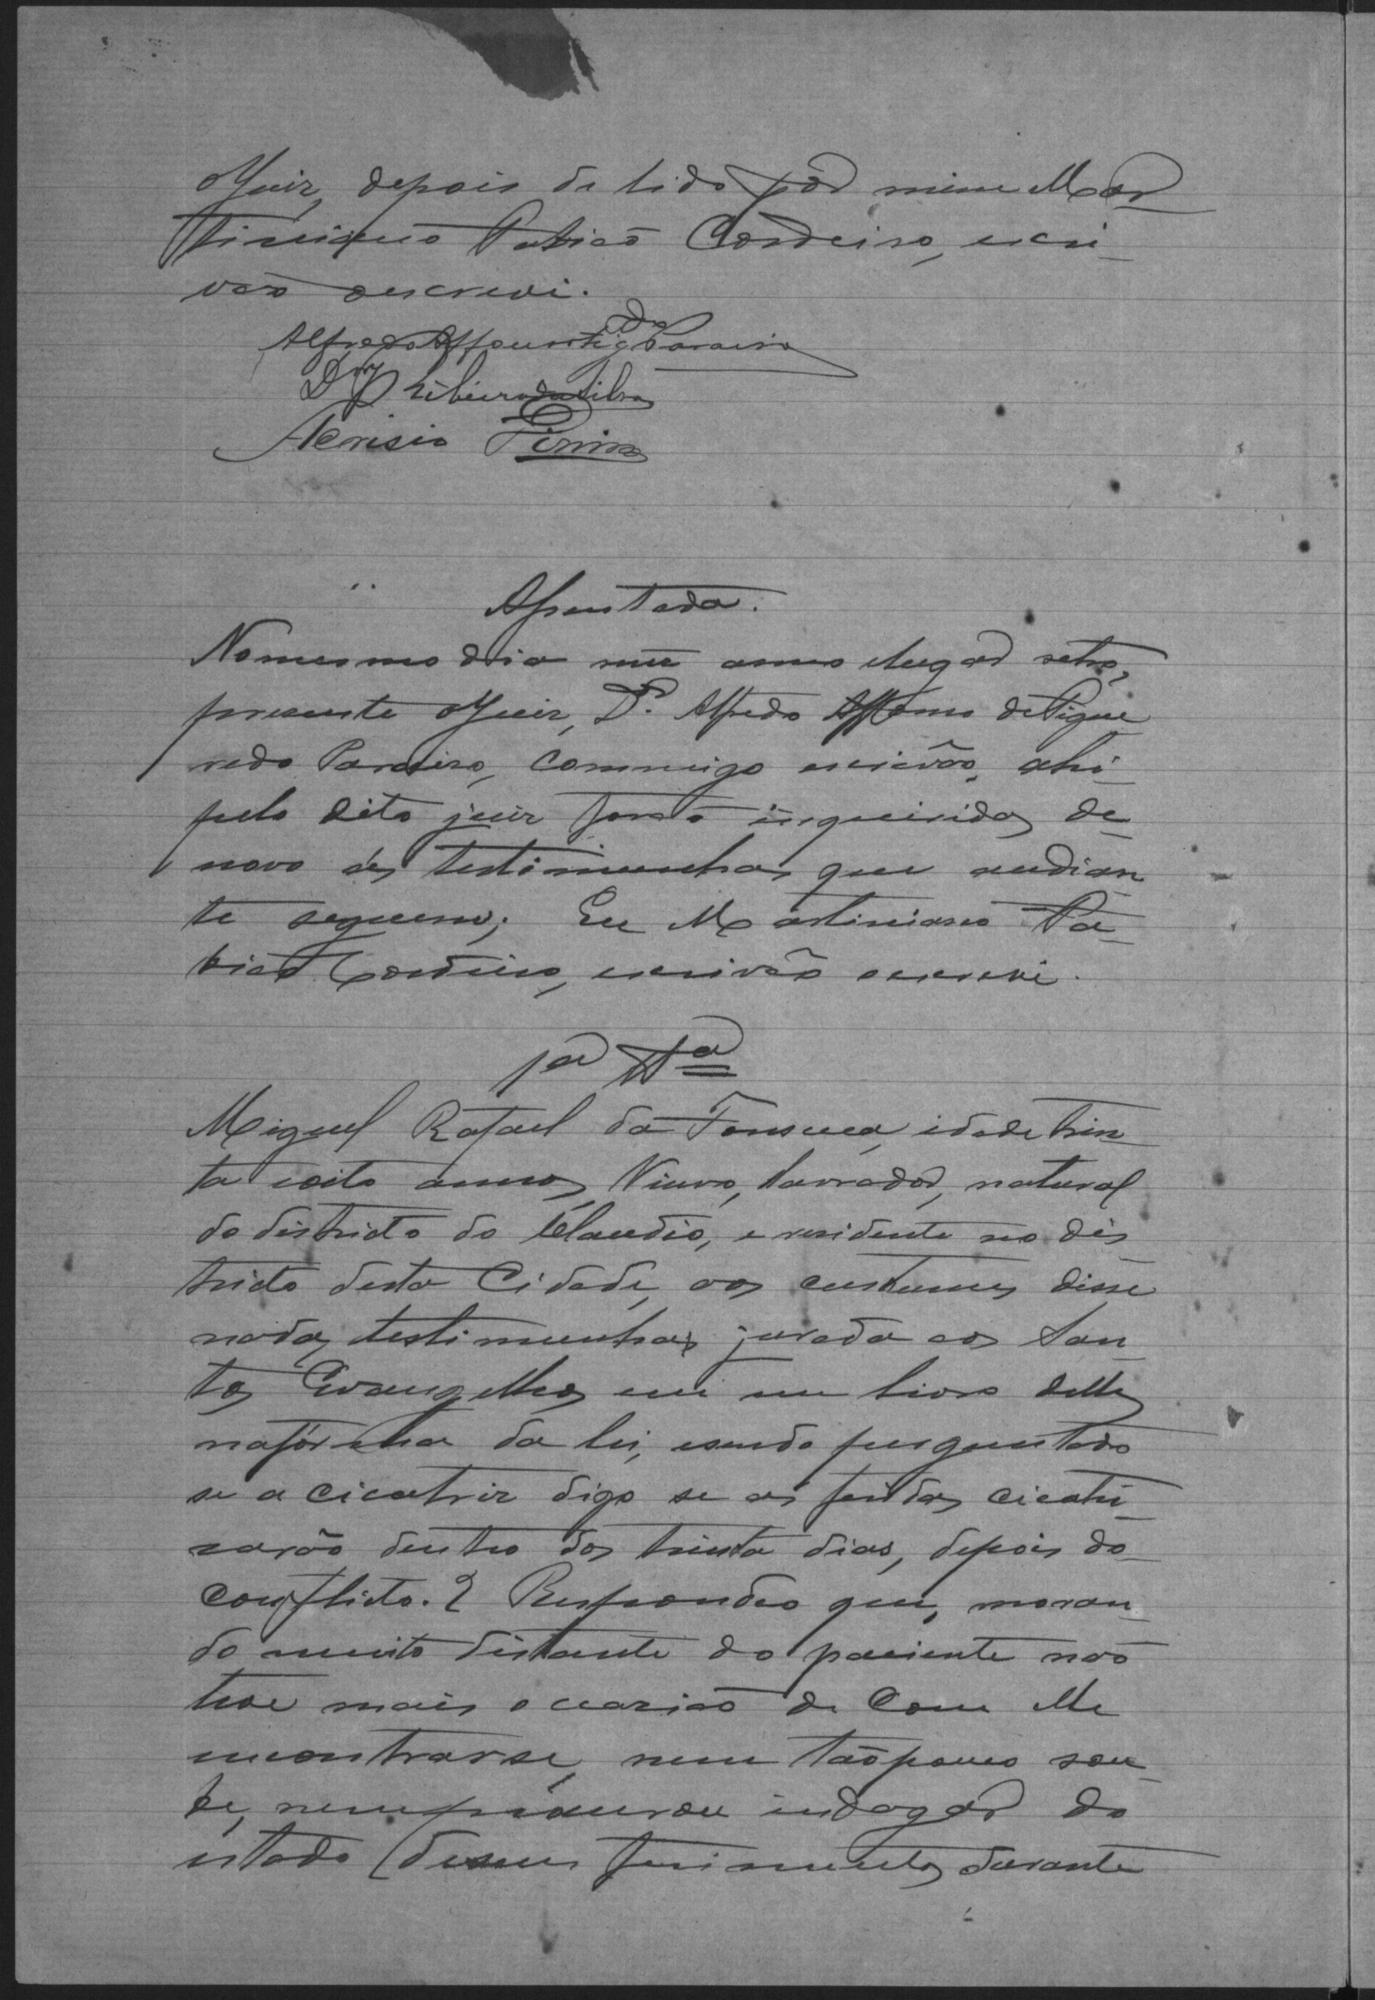 oJuiz, depois de lido por mim Mar
tiniano Patricio Cordeiro, escri
vão oescrevi.
Alfredo Affonso Figdo Paraiso
Ribeiro da Silva
Acrisio
Assentada.
Nomesmo dia mez anno elugar retro,
presente oJuiz, Dr. Alfredo Affonso de Figue
redo Paraiso, commigo escrivão, ahi
pelo dito juiz forão inqueiridas de
novo as testimunhas que adian
te seguem; Eu Martiniano Pa
tricio Cordeiro, escrivão oescrevi.
1a Ta
Miguel Rafael da Fonseca, idade trin
ta eoito annos, Viuvo, lavrador, natural
do districto do Claudio, e residente no dis
tricto desta Cidade, aos custumes disse
nada, testimunha jurada aos San
tos Evangelhos em um livro delles
nafórma da lei, esendo perguntado
se a cicatriz digo se as feridas cicatri
zarão dentro dos trinta dias, depois do
conflicto.? Respondeo que, moran
do muito distante do paciente não
teve mais occazião de com elle
encontrarse, nem tãopouco sou
be, nem procurou indagar do
estado deseus ferimentos durante